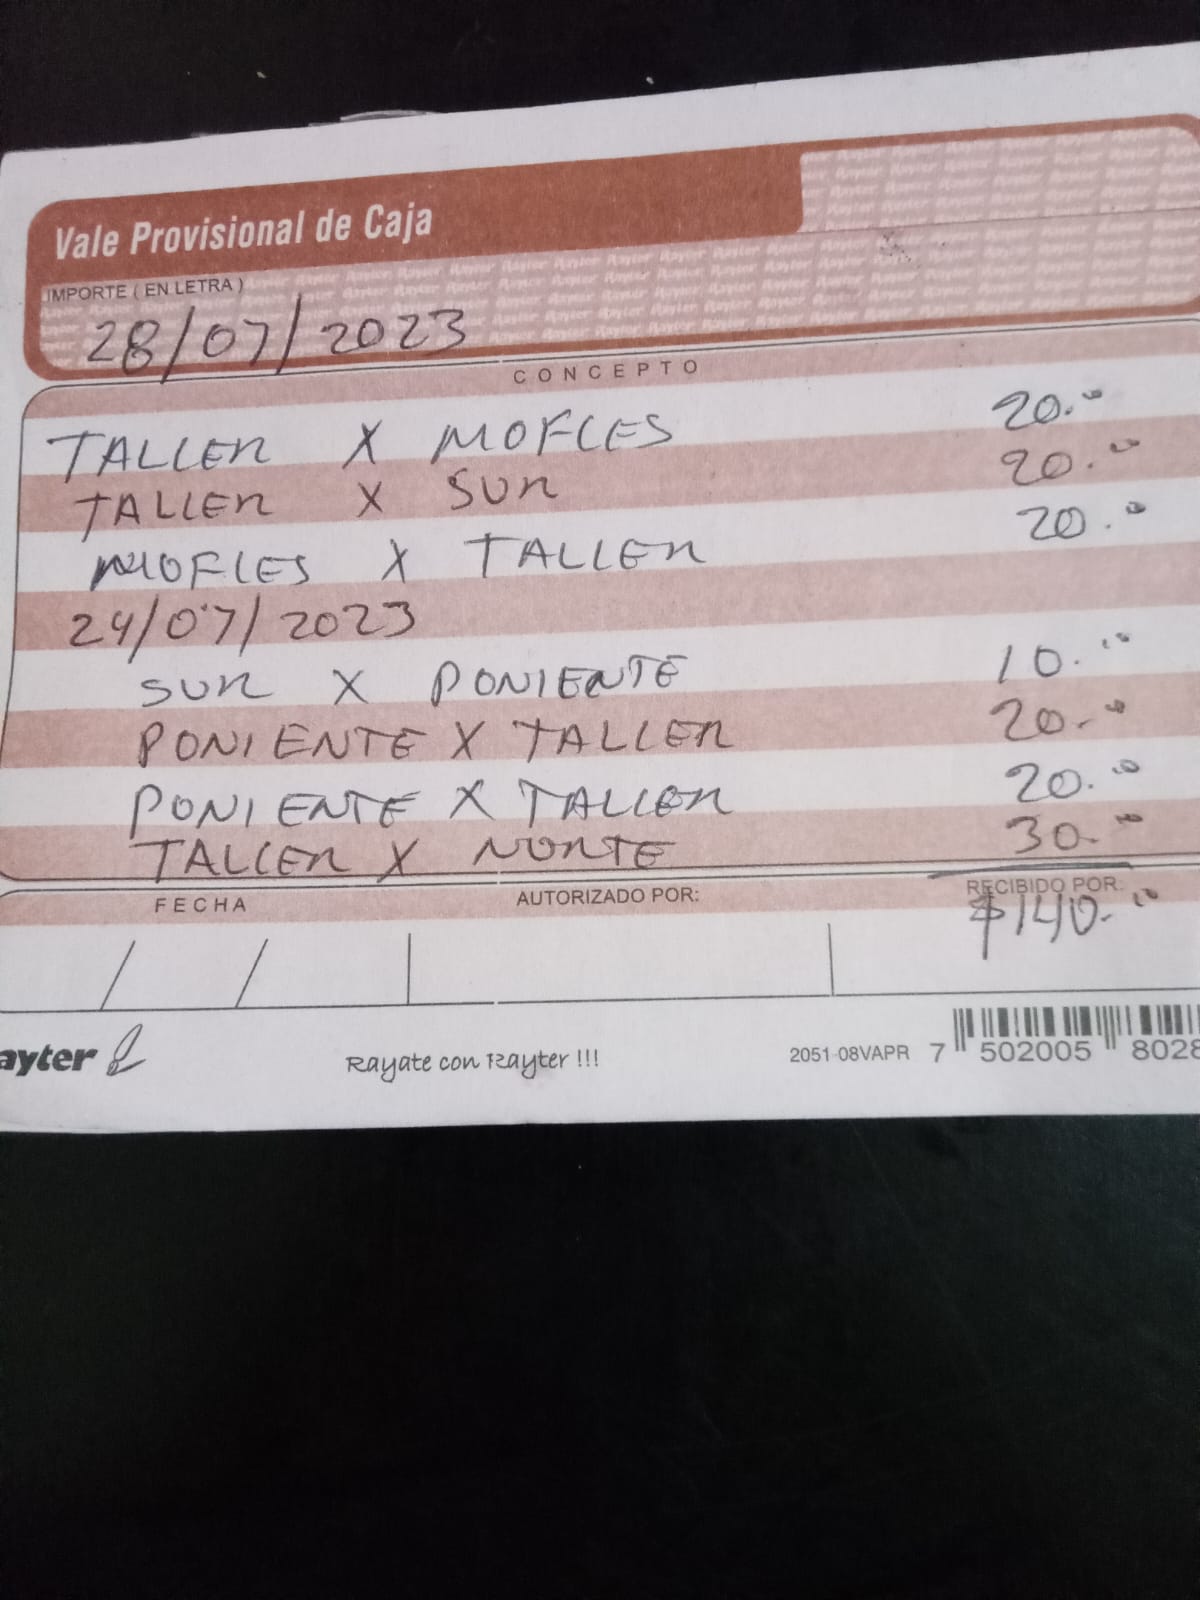 Vale Provisional de Caja
IMPORTE ( EN LETRA )
28/07/2023
CONCEPTO
TALLER X MOFLES 20.00
TALLER X SUR 20.00
MOFLES X TALLER 20.00
24/07/2023
SUR X PONIENTE 10.00
PONIENTE X TALLER 20.00
PONIENTE X TALLER 20.00
TALLER X NORTE 30.00
FECHA AUTORIZADO POR: RECIBIDO POR:
$140.00
/ /
ayter Rayate con Rayter !!! 2051-08VAPR 7 502005 8028